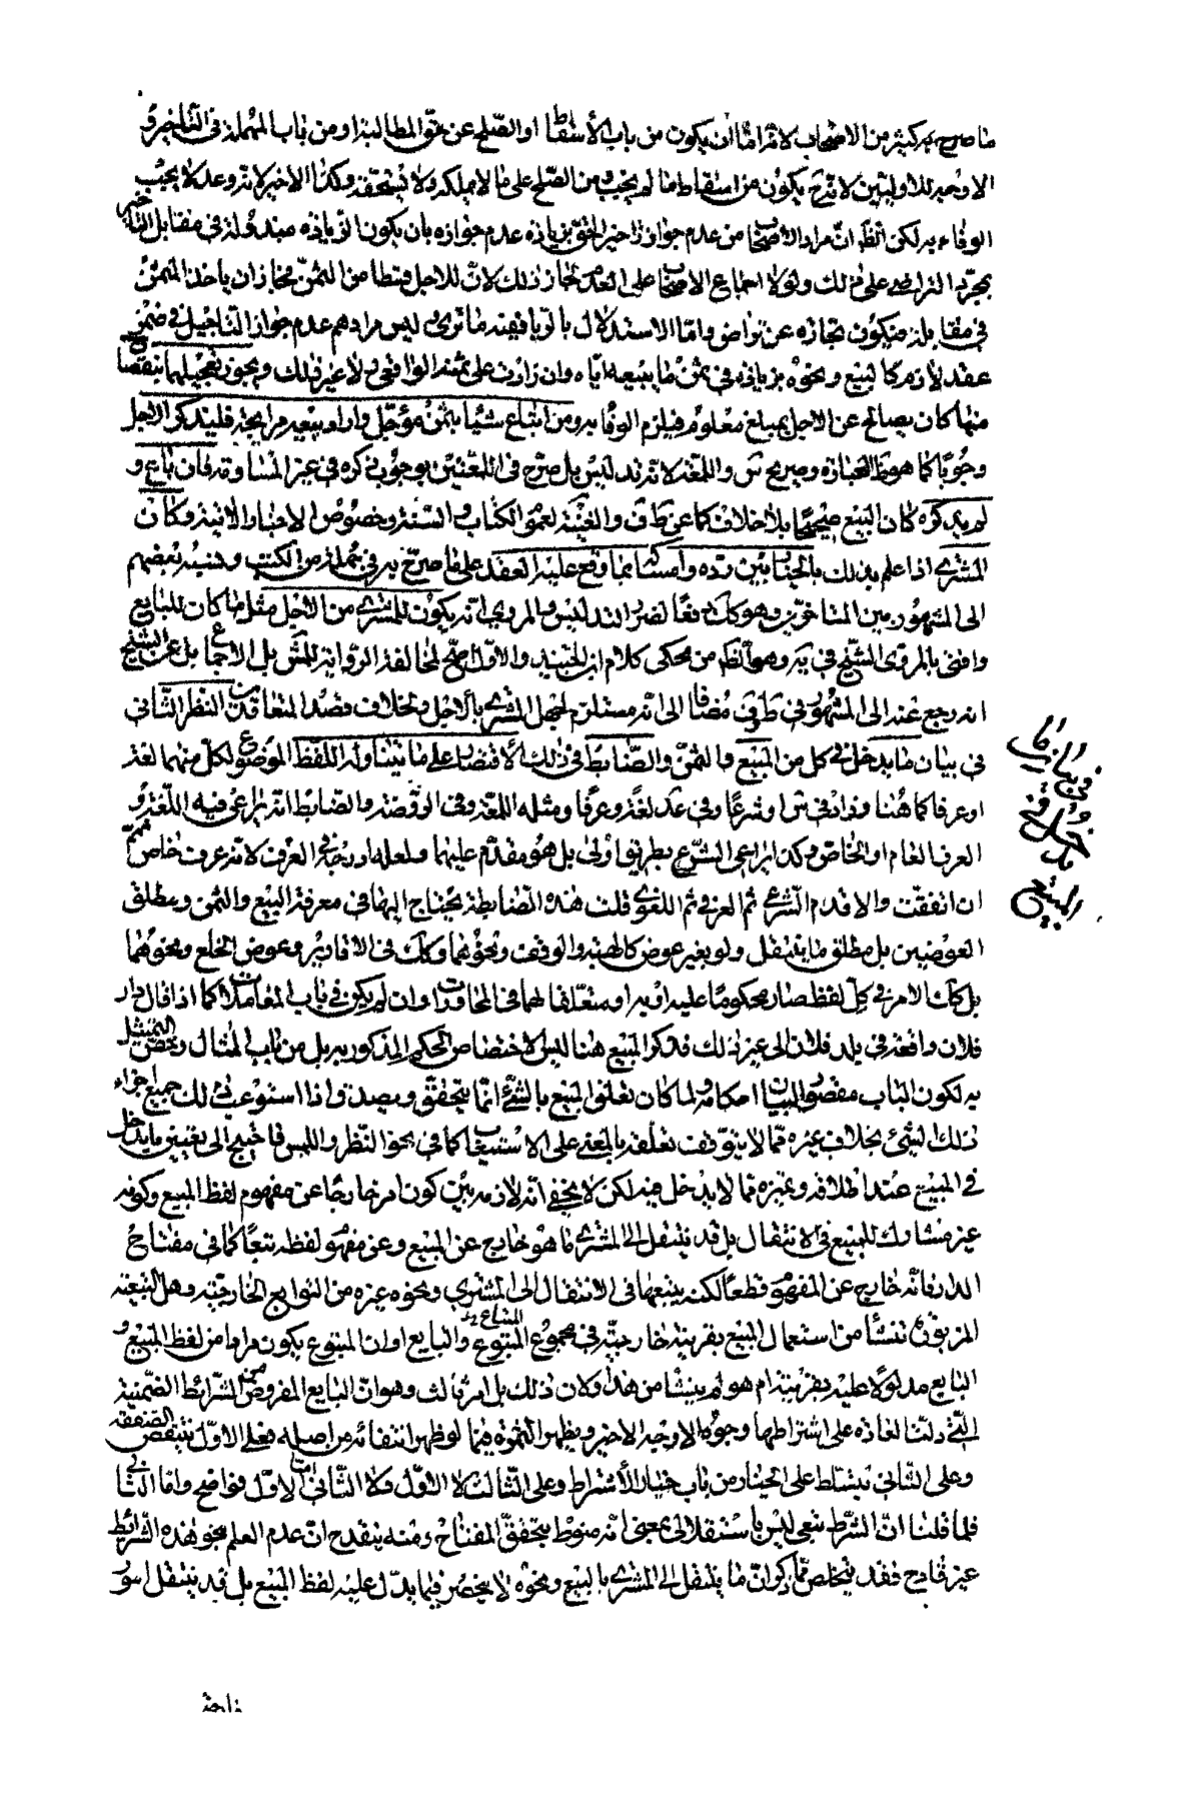 ما صرح به كثير من الاصحاب لانه اما ان يكون من باب الأسقاط او الصلح عن حق المطالبة او من باب المهملة في التاخير و
الاوجه للاوليين لانه ح يكون من اسقاط ما لم يجب ومن الصلح على ما لا يملكه ولا يستحقه وكذا الاخير لانه وعد لا يجب
الوفاء به لكن الظ ان مراد الاصحاب من عدم جواز تاخير الحق بزيادة عدم جوازه بان يكون الزيادة مبذولة في مقابل التاخير
بمجرد التراضي على ذلك ولولا اجماع الاصحاب على العدم لجاز ذلك لان للاجل قسطا من الثمن فجاز ان ياخذ الثمن
في مقابله فيكون تجارة عن تراض واما الاستدلال بالربا ففيه ما ترى وليس مرادهم عدم جواز التاجيل في ضمن
عقد لازم كالبيع ونحوه بزيادة في ثمن ما يبيعه اياه وان زادت على ثمنه الواقعي ولا غير ذلك ويجوز تعجيلها بنقصا
منها كان يصالح عن الاجل بمبلغ معلوم فيلزم الوفا به ومن ابتاع شيئا بثمن مؤجل واراد بيعه مرابحة فليذكر الاجل
وجوبا كما هو ظ العبارة وصريح ش واللمعة لانه تدليس بل صرح في اللمعتين بوجوب ذكره في غير المساومة فان باع و
لم يذكره كان البيع صحيحا بلا خلاف كما عن ط ف والغنية لعموم الكتاب والسنة وخصوص الاخبار الاتية وكان
المشتري اذا علم بذلك بالخيار بين رده وامساكه بما وقع عليه العقد على ما صرح به في جملة من الكتب ونسبه بعضهم
الى المشهور بين المتاخرين وهو كك دفعا لضرر التدليس والمروي انه يكون للمشتري من الاجل مثل ما كان للبايع
وافتى بالمروي الشيخ في يه وهو الظ من محكي كلام ابن الجنيد والاول اصح لمخالفة الرواية للمش بل الاجماع بل عن الشيخ
انه رجع عنه الى المشهور في ط ف مضافا الى انه مستلزم لجهل المشتري بالاجل وبخلاف قصد المتعاقدين النظر الثاني
في بيان ما يدخل في كل من المبيع والثمن والضابط في ذلك الاقتصار على ما يتناوله اللفظ الموضوع لكل منهما لغة
او عرفا كما هنا وزاد في ش او شرعا وفي عد لغة وعرفا ومثله اللمعة وفي الروضة والضابط انه يراعى فيه اللغة و
العرف العام او الخاص وكذا يراعى الشرع بطريق اولى بل هو مقدم عليها ولعله ادرجه في العرف لانه عرف خاص ثم
ان اتفقت والا قدم الشرعي ثم العرفي ثم اللغوي قلت هذه الضابطة يحتاج اليها في معرفة المبيع والثمن ومطلق
العوضين بل مطلق ما ينتقل ولو بغير عوض كالهبة والوقف ونحوهما وكك في الاقارير وعوض الخلع ونحوهما
بل كك الامر في كل لفظ صار محكوما عليه او به او متعلقا لهما في المحاورات وان لم يكن في باب المعاملات كما اذا قال دار
فلان واقعة في بلد فلان الى غير ذلك فذكر المبيع هنا ليس لاختصاص الحكم المذكور به بل من باب المثال وخص التمثيل
به لكون الباب مقصورا لبيان احكامه ولما كان تعلق المبيع بالشئ انما يتحقق ويصدق اذا استوعب ذلك جميع اجزاء
ذلك الشئ بخلاف غيره مما لا يتوقف تعلقه بالمعنى على الاستيعاب كما في نحو النظر واللمس فاحتيج الى تعيين ما يدخل
في المبيع عند اطلاقه وتميزه مما لا يدخل فيه لكن لا يخفى انه لازمه بين كون امر خارجا عن مفهوم لفظ المبيع وكونه
غير مشارك للمبيع في الانتقال بل قد ينتقل الى المشتري ما هو خارج عن المبيع وعن مفهوم لفظه تبعا كما في مفتاح
الدار فانه خارج عن المفهوم قطعا لكنه يتبعها في الانتقال الى المشتري ونحوه غيره من التوابع الخارجية وهل التبعية
المزبورة تنشأ من استعمال المبيع بقرينة خارجية في مجموع المتبوع والتابع او ان المتبوع يكون مرادا من لفظ المبيع و
التابع مدلولا عليه بقرينة ام هو لم ينشأ من هذا وكان ذلك بل امر ثالث وهو ان التابع المفروض من الشرائط الضمنية
التي دلت العادة على اشتراطها وجوه الاوجه الاخير ويظهر الثمرة فيما لو ظهر انتفائه من اصله فعلى الاول تتبعض الصفقة
وعلى الثاني يتسلط على الخيار من باب خيار الأشتراط وعلى الثالث لا الاول ولا الثاني اما الاول فواضح واما الثاني
فلما قلنا ان الشرط تبعي ليس باستقلالي بمعنى انه منوط بتحقق المفتاح ومنه ينقدح ان عدم العلم بنحو هذه الشرائط
غير قادح فقد تخلص مما ذكر ان ما ينتقل الى المشتري بالبيع ونحوه لا ينحصر فيما يدل عليه لفظ المبيع بل قد ينتقل امور
في بيان ما
يدخل في
المبيع